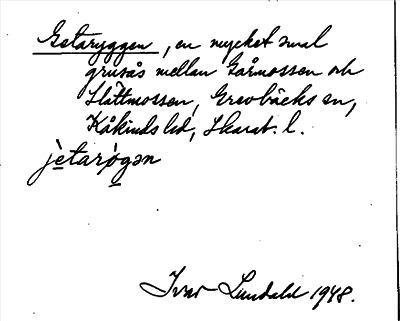 Getaryggen, en mycket smal
grusås mellan Gårmossen och
Slåttmossen, Grevbäcks sn,
Kåkinds hd, Skarab. l.
jètarø̀gən
Ivar Lundahl 1948.